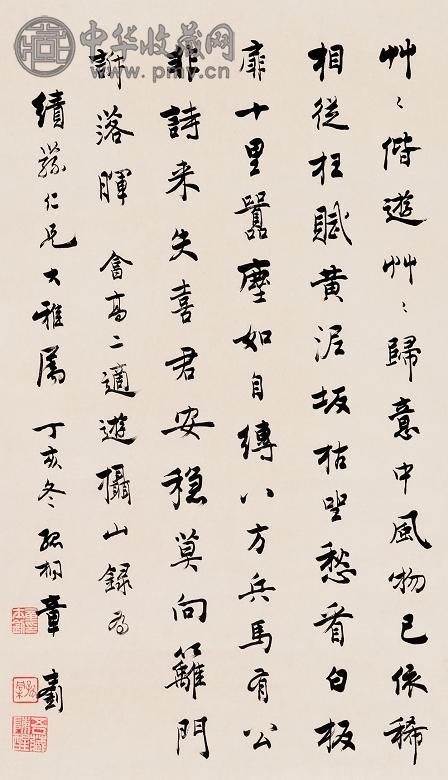 艸〻偕遊艸〻歸意中風物已依稀
相從枉賦黃泥坂枯坐愁看白板
扉十里囂塵如自縛八方兵馬有公
非詩来失喜君安穩莫向籬門
訴落暉 會高二適遊攝山錄為
績蓀仁兄大雅屬 丁亥冬孤桐章士釗
中华收藏网
www.pmv.cn